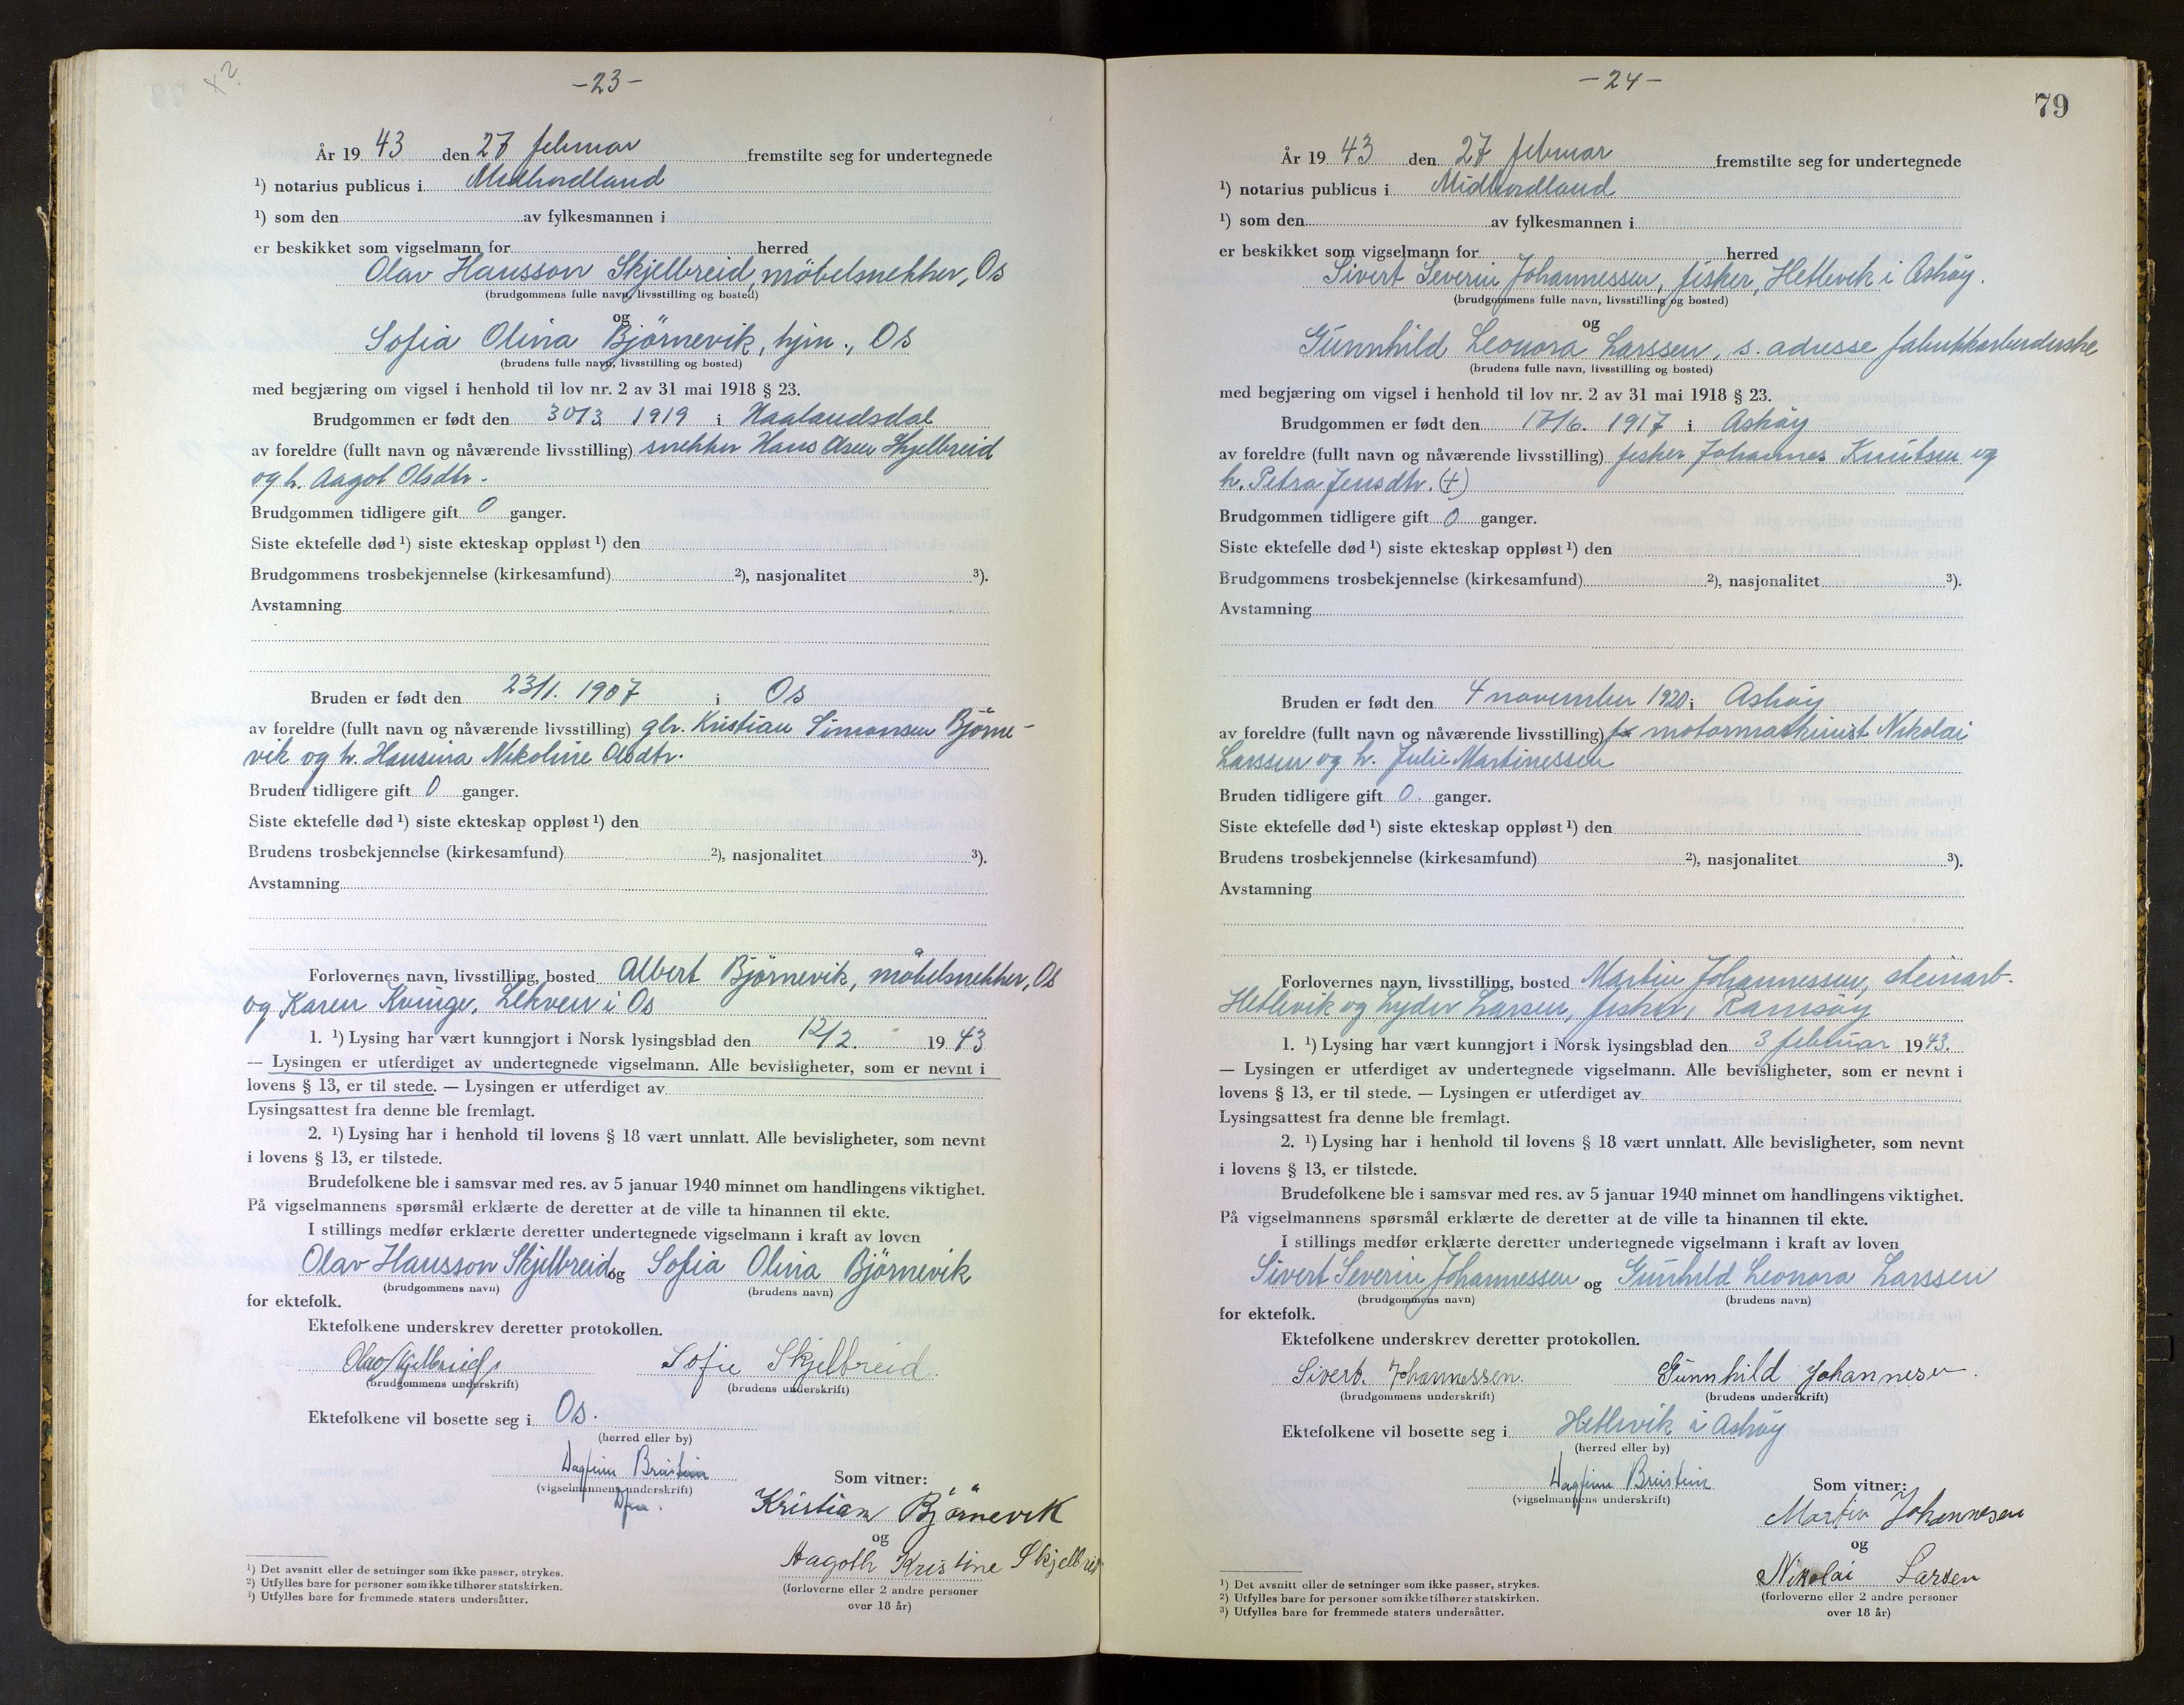 -23-
År 19 43 den 27 februar fremstilte seg for undertegnede
¹) notarius publicus i Midhordland
¹) som den av fylkesmannen i
er beskikket som vigselmann for herred
Olav Hansson Skjelbreid, möbelsnekker, Os
(brudgommens fulle navn, livsstilling og bosted)
og
Sofia Olina Björnevik, hjm., Os
(brudens fulle navn, livsstilling og bosted)
med begjæring om vigsel i henhold til lov nr. 2 av 31 mai 1918 § 23.
Brudgommen er født den 30/3 1919 i Haalandsdal
av foreldre (fullt navn og nåværende livsstilling) snekker Hans Olsen Skjelbreid
og h. Aagot Olsdtr.
Brudgommen tidligere gift 0 ganger.
Siste ektefelle død ¹) siste ekteskap oppløst ¹) den
Brudgommens trosbekjennelse (kirkesamfund) ²), nasjonalitet ³).
Avstamning
Bruden er født den 23/1. 1907 i Os
av foreldre (fullt navn og nåværende livsstilling) gbr. Kristian Simonsen Björne-
vik og h. Hansina Nikoline Olsdtr.
Bruden tidligere gift 0 ganger.
Siste ektefelle død ¹) siste ekteskap oppløst ¹) den
Brudens trosbekjennelse (kirkesamfund) ²), nasjonalitet ³).
Avstamning
Forlovernes navn, livsstilling, bosted Albert Björnevik, möbelsnekker, Os
og Karen Kvinge, Lekven i Os
1. ¹) Lysing har vært kunngjort i Norsk lysingsblad den 12/2. 19 43
— Lysingen er utferdiget av undertegnede vigselmann. Alle bevisligheter, som er nevnt i
lovens § 13, er til stede. — Lysingen er utferdiget av
Lysingsattest fra denne ble fremlagt.
2. ¹) Lysing har i henhold til lovens § 18 vært unnlatt. Alle bevisligheter, som nevnt
i lovens § 13, er tilstede.
Brudefolkene ble i samsvar med res. av 5 januar 1940 minnet om handlingens viktighet.
På vigselmannens spørsmål erklærte de deretter at de ville ta hinannen til ekte.
I stillings medfør erklærte deretter undertegnede vigselmann i kraft av loven
Olav Hansson Skjelbreid og Sofia Olina Björnevik
(brudgommens navn) (brudens navn)
for ektefolk.
Ektefolkene underskrev deretter protokollen.
Olav Skjelbreid Sofie Skjelbreid.
(brudgommens underskrift) (brudens underskrift)
Ektefolkene vil bosette seg i Os.
(herred eller by)
Dagfinn Breistein
(vigselmannens underskrift)
Som vitner:
Kristian Björnevik
og
Aagoth Kristine Skjelbreid
(forloverne eller 2 andre personer
over 18 år)
¹) Det avsnitt eller de setninger som ikke passer, strykes.
²) Utfylles bare for personer som ikke tilhører statskirken.
³) Utfylles bare for fremmede staters undersåtter.
-24-
79
År 19 43 den 27 februar fremstilte seg for undertegnede
¹) notarius publicus i Midhordland
¹) som den av fylkesmannen i
er beskikket som vigselmann for herred
Sivert Severin Johannessen, fisker, Hetlevik i Askøy.
(brudgommens fulle navn, livsstilling og bosted)
og
Gunnhild Leonora Larssen, s. adresse fabrikkarbeiderske
(brudens fulle navn, livsstilling og bosted)
med begjæring om vigsel i henhold til lov nr. 2 av 31 mai 1918 § 23.
Brudgommen er født den 17/6. 1917 i Askøy
av foreldre (fullt navn og nåværende livsstilling) fisker Johannes Knutsen og
h. Petra Jensdtr. (+)
Brudgommen tidligere gift 0 ganger.
Siste ektefelle død ¹) siste ekteskap oppløst ¹) den
Brudgommens trosbekjennelse (kirkesamfund) ²), nasjonalitet ³).
Avstamning
Bruden er født den 4 november 1920 i Askøy
av foreldre (fullt navn og nåværende livsstilling) motormaskinist Nikolai
Larssen og h. Julie Martinessen
Bruden tidligere gift 0. ganger.
Siste ektefelle død ¹) siste ekteskap oppløst ¹) den
Brudens trosbekjennelse (kirkesamfund) ²), nasjonalitet ³).
Avstamning
Forlovernes navn, livsstilling, bosted Martin Johannessen, steinarb.
Hetlevik og Lyder Larsen, fisker, Ramsøy
1. ¹) Lysing har vært kunngjort i Norsk lysingsblad den 3 februar 19 43.
— Lysingen er utferdiget av undertegnede vigselmann. Alle bevisligheter, som er nevnt i
lovens § 13, er til stede. — Lysingen er utferdiget av
Lysingsattest fra denne ble fremlagt.
2. ¹) Lysing har i henhold til lovens § 18 vært unnlatt. Alle bevisligheter, som nevnt
i lovens § 13, er tilstede.
Brudefolkene ble i samsvar med res. av 5 januar 1940 minnet om handlingens viktighet.
På vigselmannens spørsmål erklærte de deretter at de ville ta hinannen til ekte.
I stillings medfør erklærte deretter undertegnede vigselmann i kraft av loven
Sivert Severin Johannessen og Gunhild Leonora Larssen
(brudgommens navn) (brudens navn)
for ektefolk.
Ektefolkene underskrev deretter protokollen.
Sivert. Johannessen. Gunnhild Johannesen.
(brudgommens underskrift) (brudens underskrift)
Ektefolkene vil bosette seg i Hetlevik i Askøy
(herred eller by)
Dagfinn Breistein
(vigselmannens underskrift)
Som vitner:
Martin Johannesen
og
Nikolai Larsen
(forloverne eller 2 andre personer
over 18 år)
¹) Det avsnitt eller de setninger som ikke passer, strykes.
²) Utfylles bare for personer som ikke tilhører statskirken.
³) Utfylles bare for fremmede staters undersåtter.